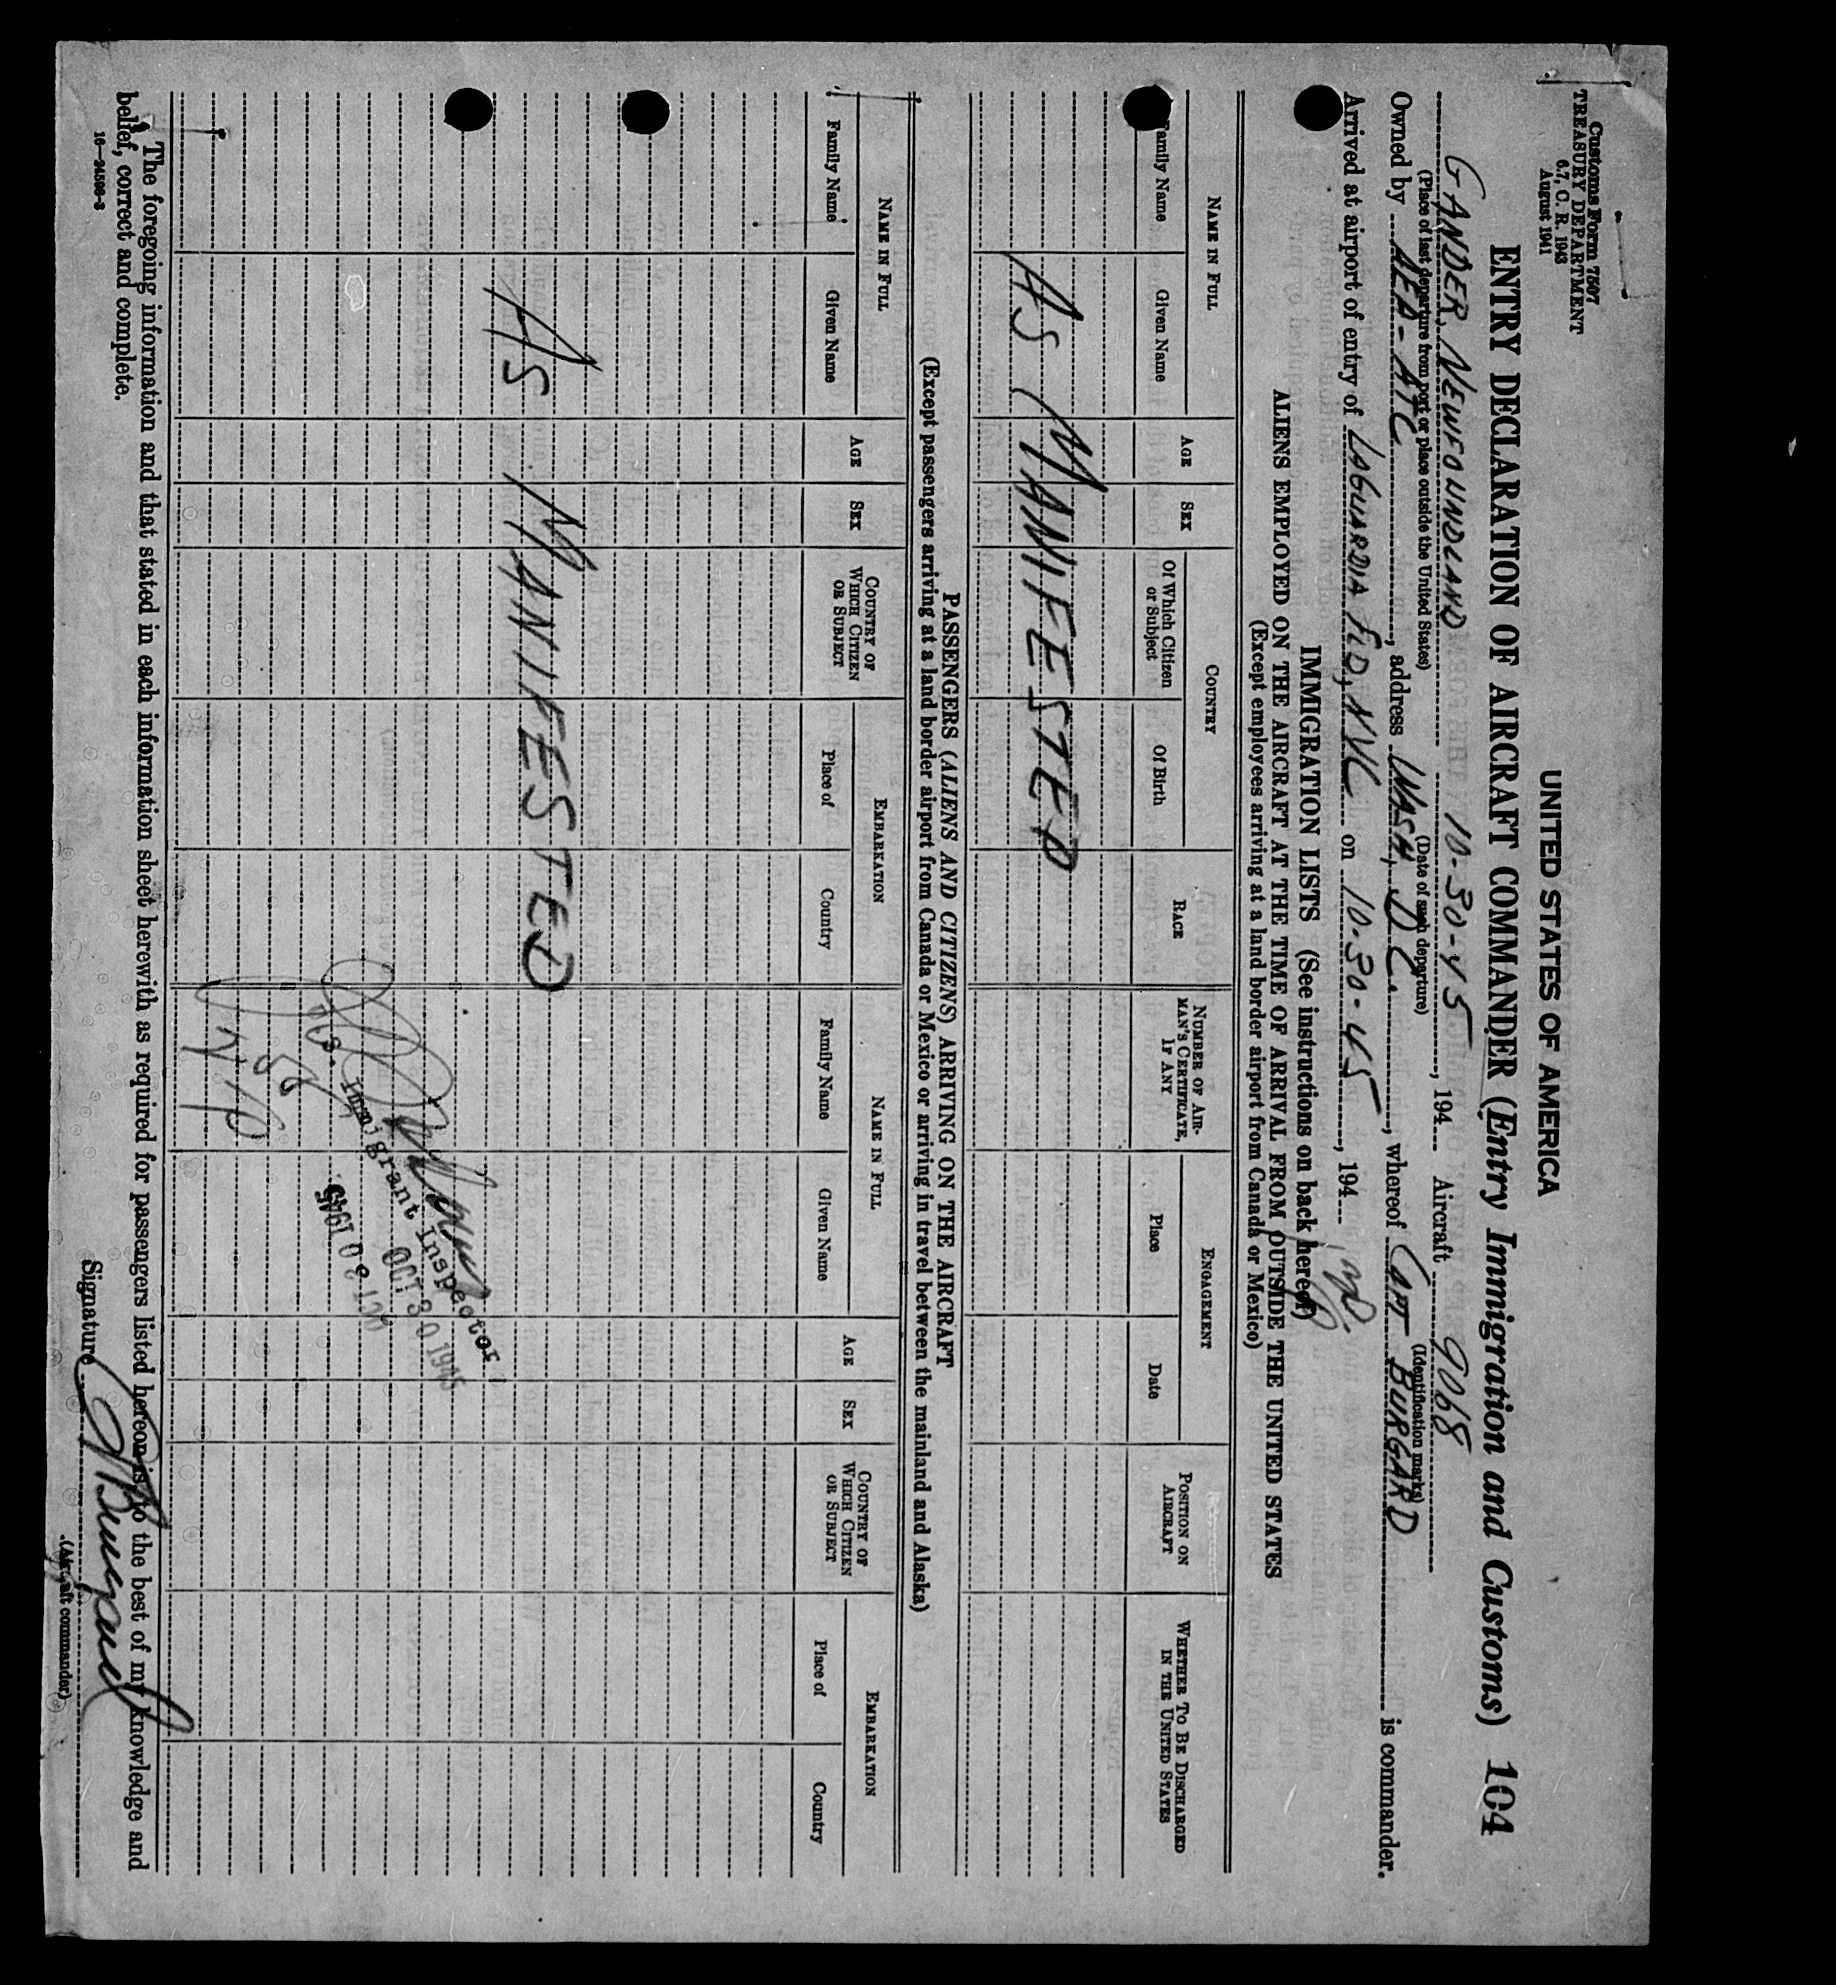 Customs Form 7507
TREASURY DEPARTMENT
6.7, C. R. 1943
August 1941
UNITED STATES OF AMERICA
ENTRY DECLARATION OF AIRCRAFT COMMANDER (Entry Immigration and Customs) 104
GANDER, NEWFOUNDLAND 10-30-45, 194 Aircraft 9068
(Place of last departure from port or place outside the United States) (Date of such departure) (Identification marks)
Owned by AEA-ATC, address WASH, D.C., whereof CAPT BURGARD is commander.
Arrived at airport of entry of LAGUARDIA FLD, NYC on 10-30-45, 194
IMMIGRATION LISTS (See instructions on back hereof)
ALIENS EMPLOYED ON THE AIRCRAFT AT THE TIME OF ARRIVAL FROM OUTSIDE THE UNITED STATES
(Except employees arriving at a land border airport from Canada or Mexico)
NAME IN FULL COUNTRY RACE NUMBER OF AIRMAN'S CERTIFICATE, IF ANY ENGAGEMENT POSITION ON AIRCRAFT WHETHER TO BE DISCHARGED IN THE UNITED STATES
Family Name Given Name AGE SEX Of Which Citizen or Subject Of Birth Place Date
AS MANIFESTED
PASSENGERS (ALIENS AND CITIZENS) ARRIVING ON THE AIRCRAFT
(Except passengers arriving at a land border airport from Canada or Mexico or arriving in travel between the mainland and Alaska)
NAME IN FULL AGE SEX COUNTRY OF WHICH CITIZEN OR SUBJECT EMBARKATION NAME IN FULL AGE SEX COUNTRY OF WHICH CITIZEN OR SUBJECT EMBARKATION
Family Name Given Name Place of Country Family Name Given Name Place of Country
AS MANIFESTED
U.S. Immigrant Inspector
OCT 30 1945
OCT 30 1945
The foregoing information and that stated in each information sheet herewith as required for passengers listed hereon is to the best of my knowledge and
belief, correct and complete.
16—24596-3
Signature Burgard
(Aircraft commander)